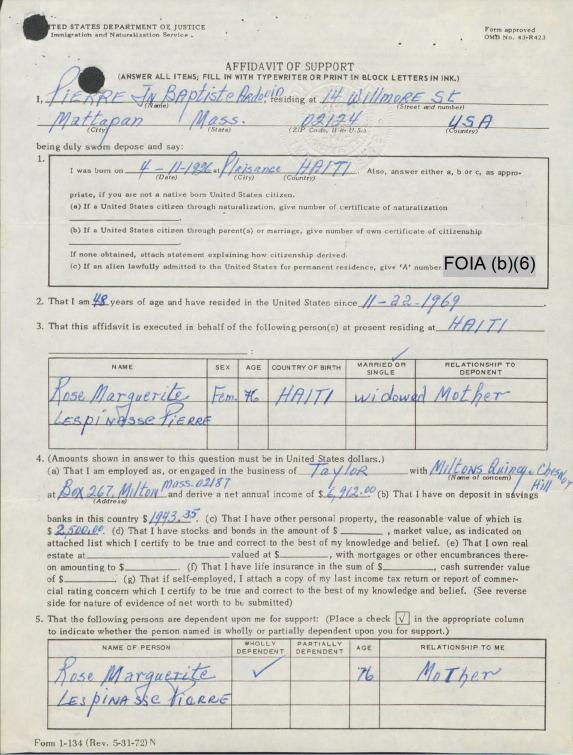 UNITED STATES DEPARTMENT OF JUSTICE
Immigration and Naturalization Service
Form approved
OMB No. 43-R423
AFFIDAVIT OF SUPPORT
(ANSWER ALL ITEMS; FILL IN WITH TYPEWRITER OR PRINT IN BLOCK LETTERS IN INK.)
I, PIERRE Jn Baptiste Ardouin, residing at 14 Willmore St
(Name) (Street and number)
Mattapan Mass. 02124 USA
(City) (State) (ZIP Code, if in U.S.) (Country)
being duly sworn depose and say:
1.
I was born on 4-11-1926 at Plaisance HAITI. Also, answer either a, b or c, as appro-
(Date) (City) (Country)
priate, if you are not a native born United States citizen.
(a) If a United States citizen through naturalization, give number of certificate of naturalization
(b) If a United States citizen through parent(s) or marriage, give number of own certificate of citizenship
If none obtained, attach statement explaining how citizenship derived.
(c) If an alien lawfully admitted to the United States for permanent residence, give 'A' number FOIA (b)(6)
2. That I am 48 years of age and have resided in the United States since 11-22-1969
3. That this affidavit is executed in behalf of the following person(s) at present residing at HAITI
:
NAME SEX AGE COUNTRY OF BIRTH MARRIED OR SINGLE RELATIONSHIP TO DEPONENT
Rose Marguerite Fem. 76 HAITI widowed Mother
LESPINASSE PIERRE
4. (Amounts shown in answer to this question must be in United States dollars.)
(a) That I am employed as, or engaged in the business of Taylor with Miltons Quincy & Chesnot Hill
(Name of concern)
at Box 267, Milton Mass. 02187 and derive a net annual income of $6,912.00 (b) That I have on deposit in savings
(Address)
banks in this country $1943.35. (c) That I have other personal property, the reasonable value of which is
$2,500.00. (d) That I have stocks and bonds in the amount of $, market value, as indicated on
attached list which I certify to be true and correct to the best of my knowledge and belief. (e) That I own real
estate at valued at $, with mortgages or other encumbrances there-
on amounting to $. (f) That I have life insurance in the sum of $, cash surrender value
of $. (g) That if self-employed, I attach a copy of my last income tax return or report of commer-
cial rating concern which I certify to be true and correct to the best of my knowledge and belief. (See reverse
side for nature of evidence of net worth to be submitted)
5. That the following persons are dependent upon me for support: (Place a check √ in the appropriate column
to indicate whether the person named is wholly or partially dependent upon you for support.)
NAME OF PERSON WHOLLY DEPENDENT PARTIALLY DEPENDENT AGE RELATIONSHIP TO ME
Rose Marguerite ✓ 76 Mother
LESPINASSE PIERRE
Form I-134 (Rev. 5-31-72) N